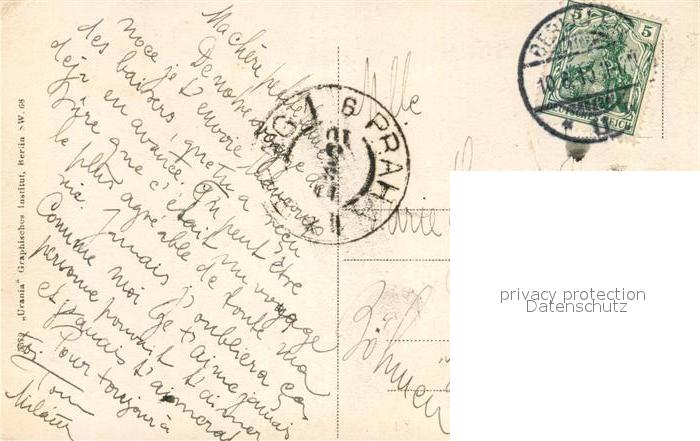 Ma chère petite
De notre voyage de
noce je t'envoie beaucoup
des baisers, que tu a reçu
déjà en avance. On peut être
dire que c'était un voyage
le plus agréable de toute ma
vie. Jamais j'oublierai ça
Comme moi je t'aime jamais
personne pouvait t'aimer
et jamais t'aimera
Pour toujours à
toi Ton
Milan
"Urania" Graphisches Institut, Berlin SW. 68
Mlle
Marie
Böhmen
6 PRAHA
BERLIN
5 5
privacy protection
Datenschutz